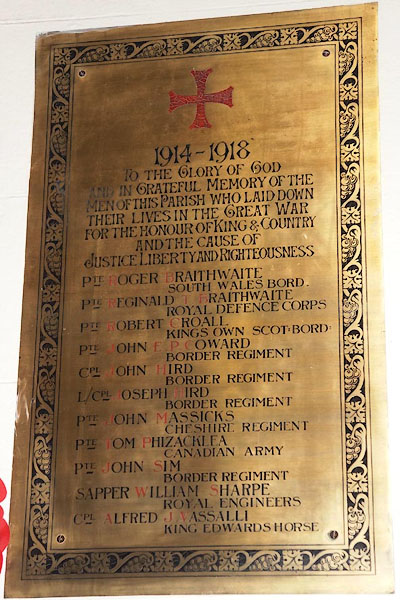 1914-1918
TO THE GLORY OF GOD
AND IN GRATEFUL MEMORY OF THE
MEN OF THIS PARISH WHO LAID DOWN
THEIR LIVES IN THE GREAT WAR
FOR THE HONOUR OF KING & COUNTRY
AND THE CAUSE OF
JUSTICE LIBERTY AND RIGHTEOUSNESS
PTE ROGER BRAITHWAITE
SOUTH WALES BORD.
PTE REGINALD T. BRAITHWAITE
ROYAL DEFENCE CORPS
PTE ROBERT CROALL
KINGS OWN SCOT: BORD:
PTE JOHN F. P. COWARD
BORDER REGIMENT
CPL JOHN HIRD
BORDER REGIMENT
L/CPL JOSEPH HIRD
BORDER REGIMENT
PTE JOHN MASSICKS
CHESHIRE REGIMENT
PTE TOM PHIZACKLEA
CANADIAN ARMY
PTE JOHN SIM
BORDER REGIMENT
SAPPER WILLIAM SHARPE
ROYAL ENGINEERS
CPL ALFRED J. VASSALLI
KING EDWARDS HORSE